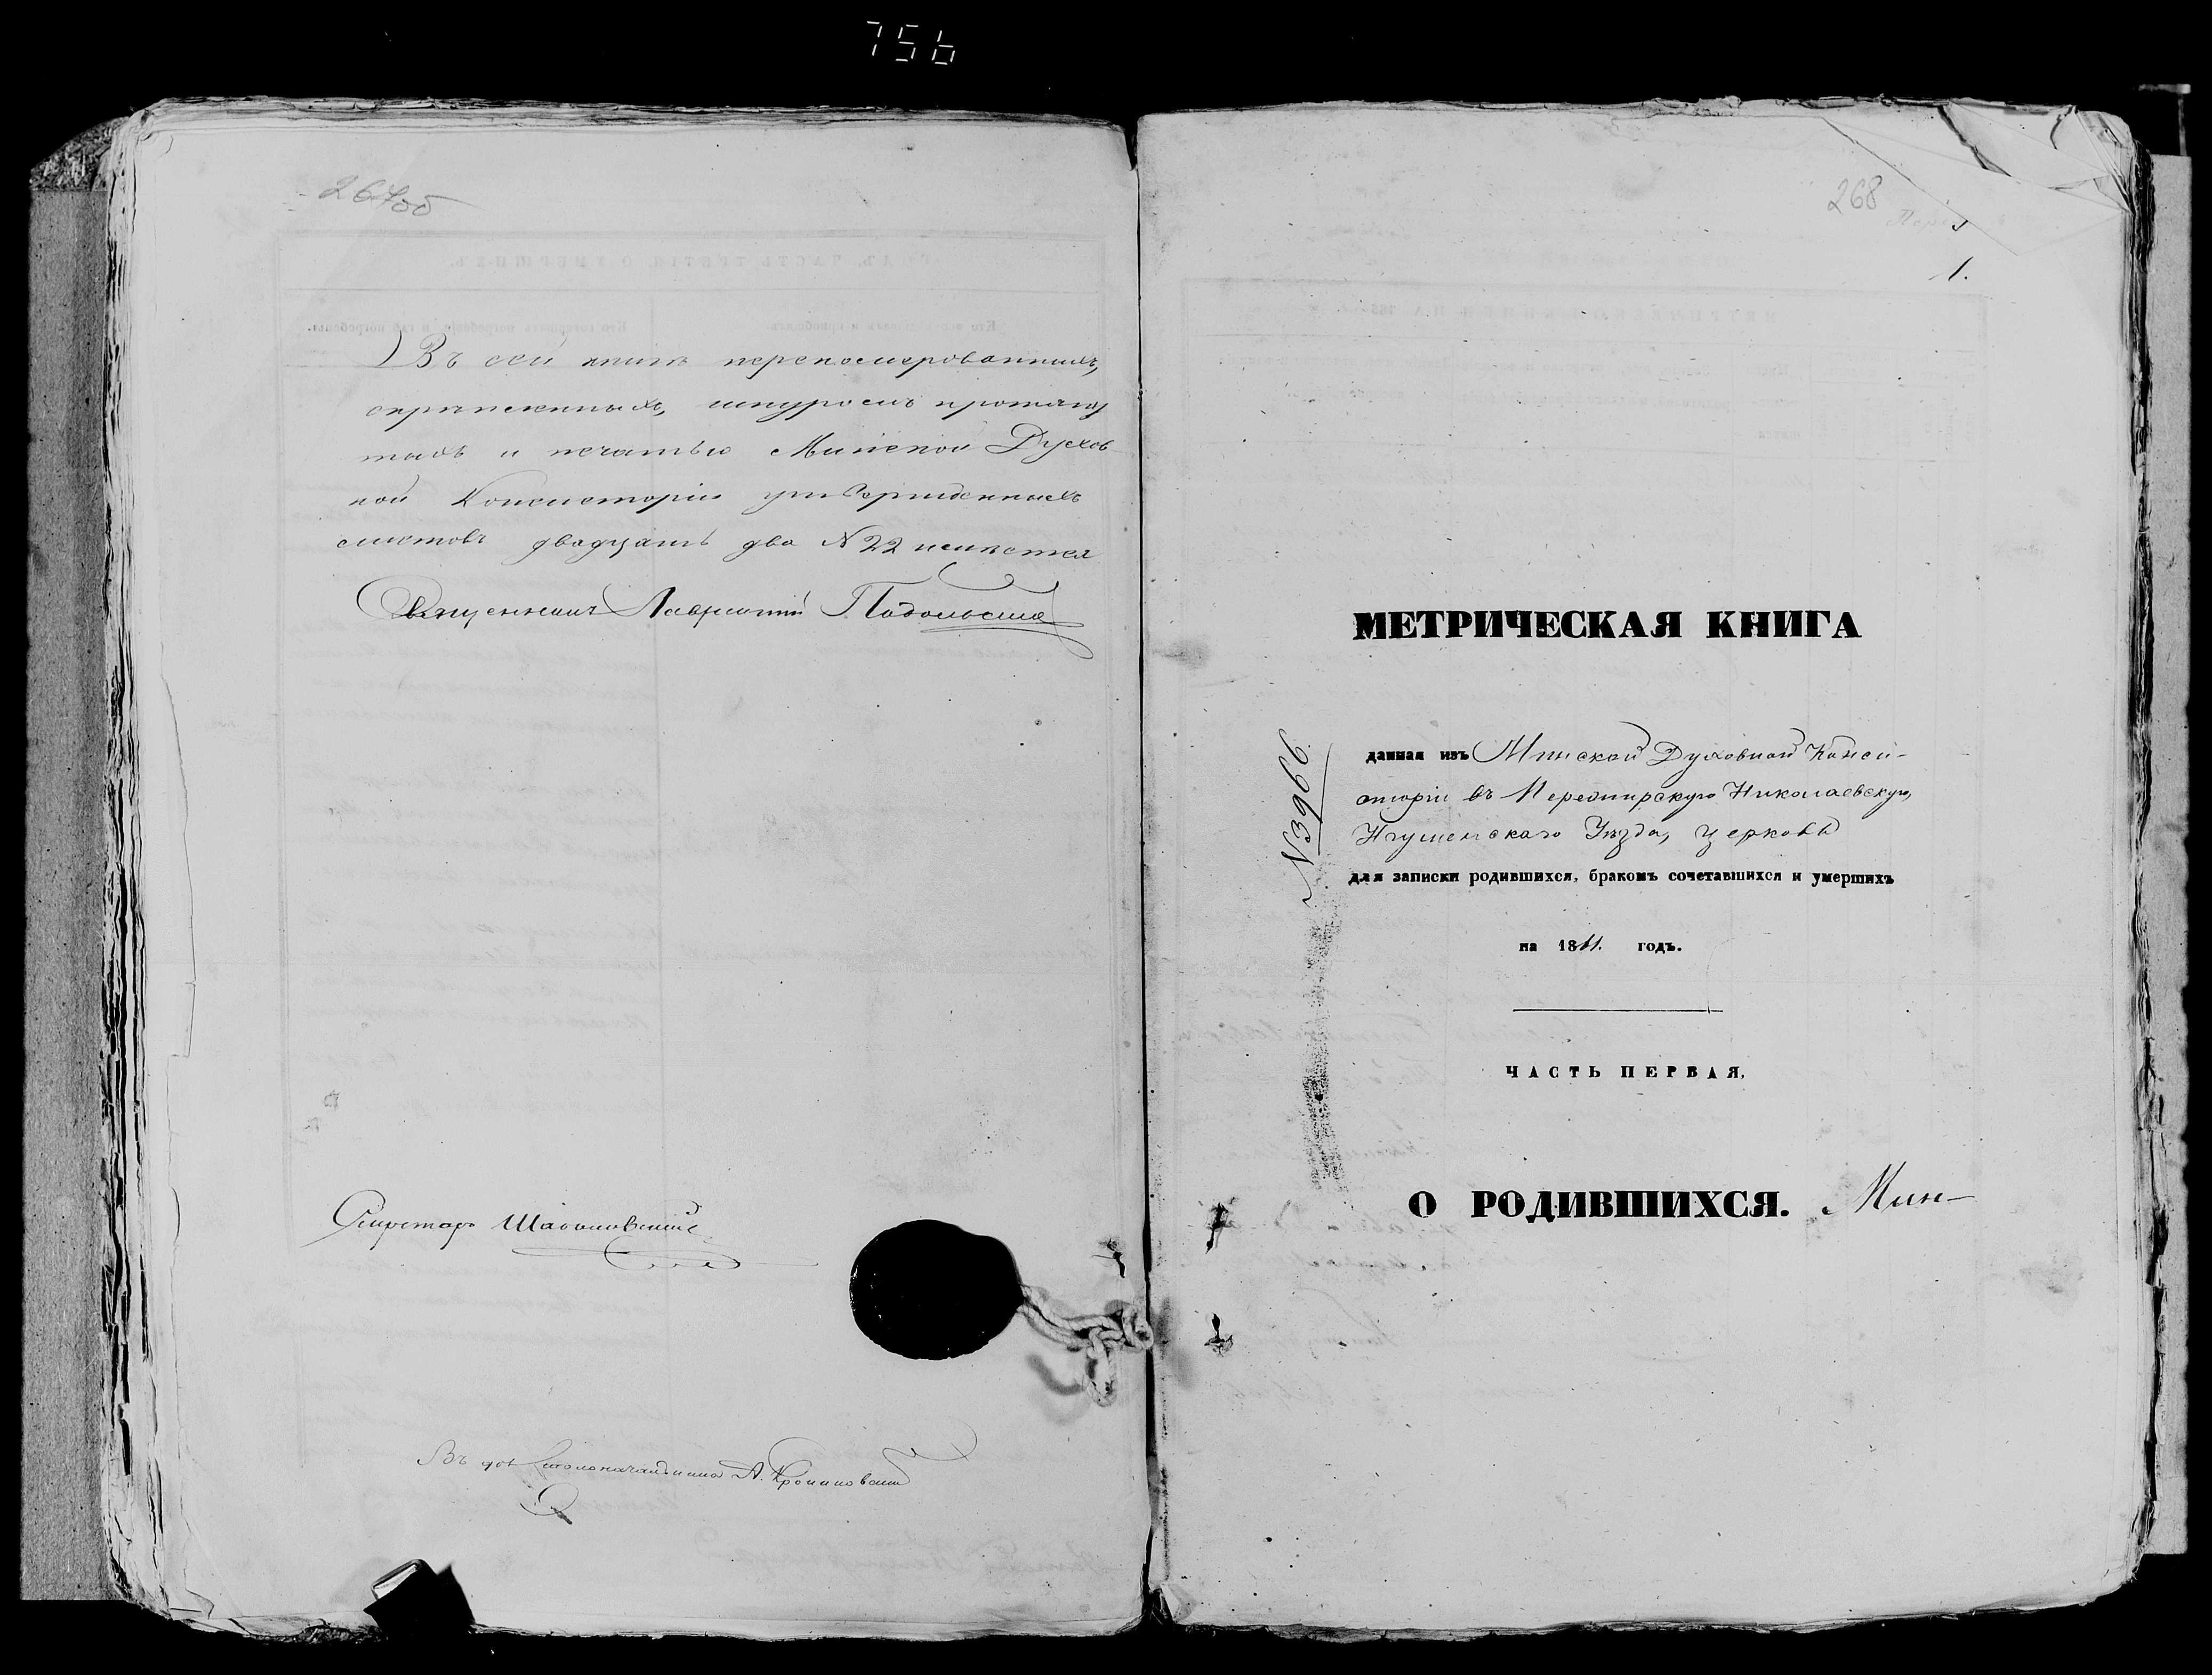 756
267об
Въ сей книгѣ перенумерованныхъ,
скрѣпленныхъ, шнуромъ протяну
тыхъ и печатью Минской Духов
ной Консисторіи утвержденныхъ
листовъ двадцать два № 22 имѣется
Священникъ Лаврентій
Секретарь
Въ дол Столоначальника А.
268
1.
МЕТРИЧЕСКАЯ КНИГА
№3966.
данная изъ Минской Духовной Конси-
сторіи въ Пережирскую Николаевскую,
Игуменскаго Уѣзда, церковь
для записки родившихся, бракомъ сочетавшихся и умершихъ
на 1861. годъ.
ЧАСТЬ ПЕРВАЯ,
О РОДИВШИХСЯ. Мин-